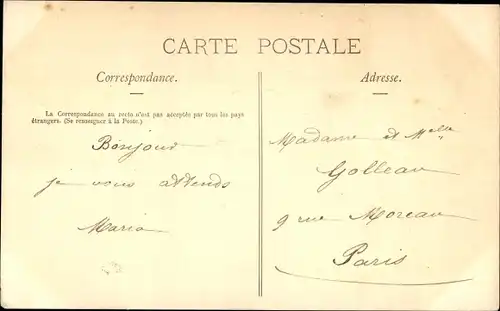 CARTE POSTALE
Correspondance.
La Correspondance au recto n'est pas acceptée par tous les pays
étrangers. (Se renseigner à la Poste.)
Bonjour
je vous attends
Maria
Adresse.
Madame et Melle
Golleau
9 rue Moreau
Paris